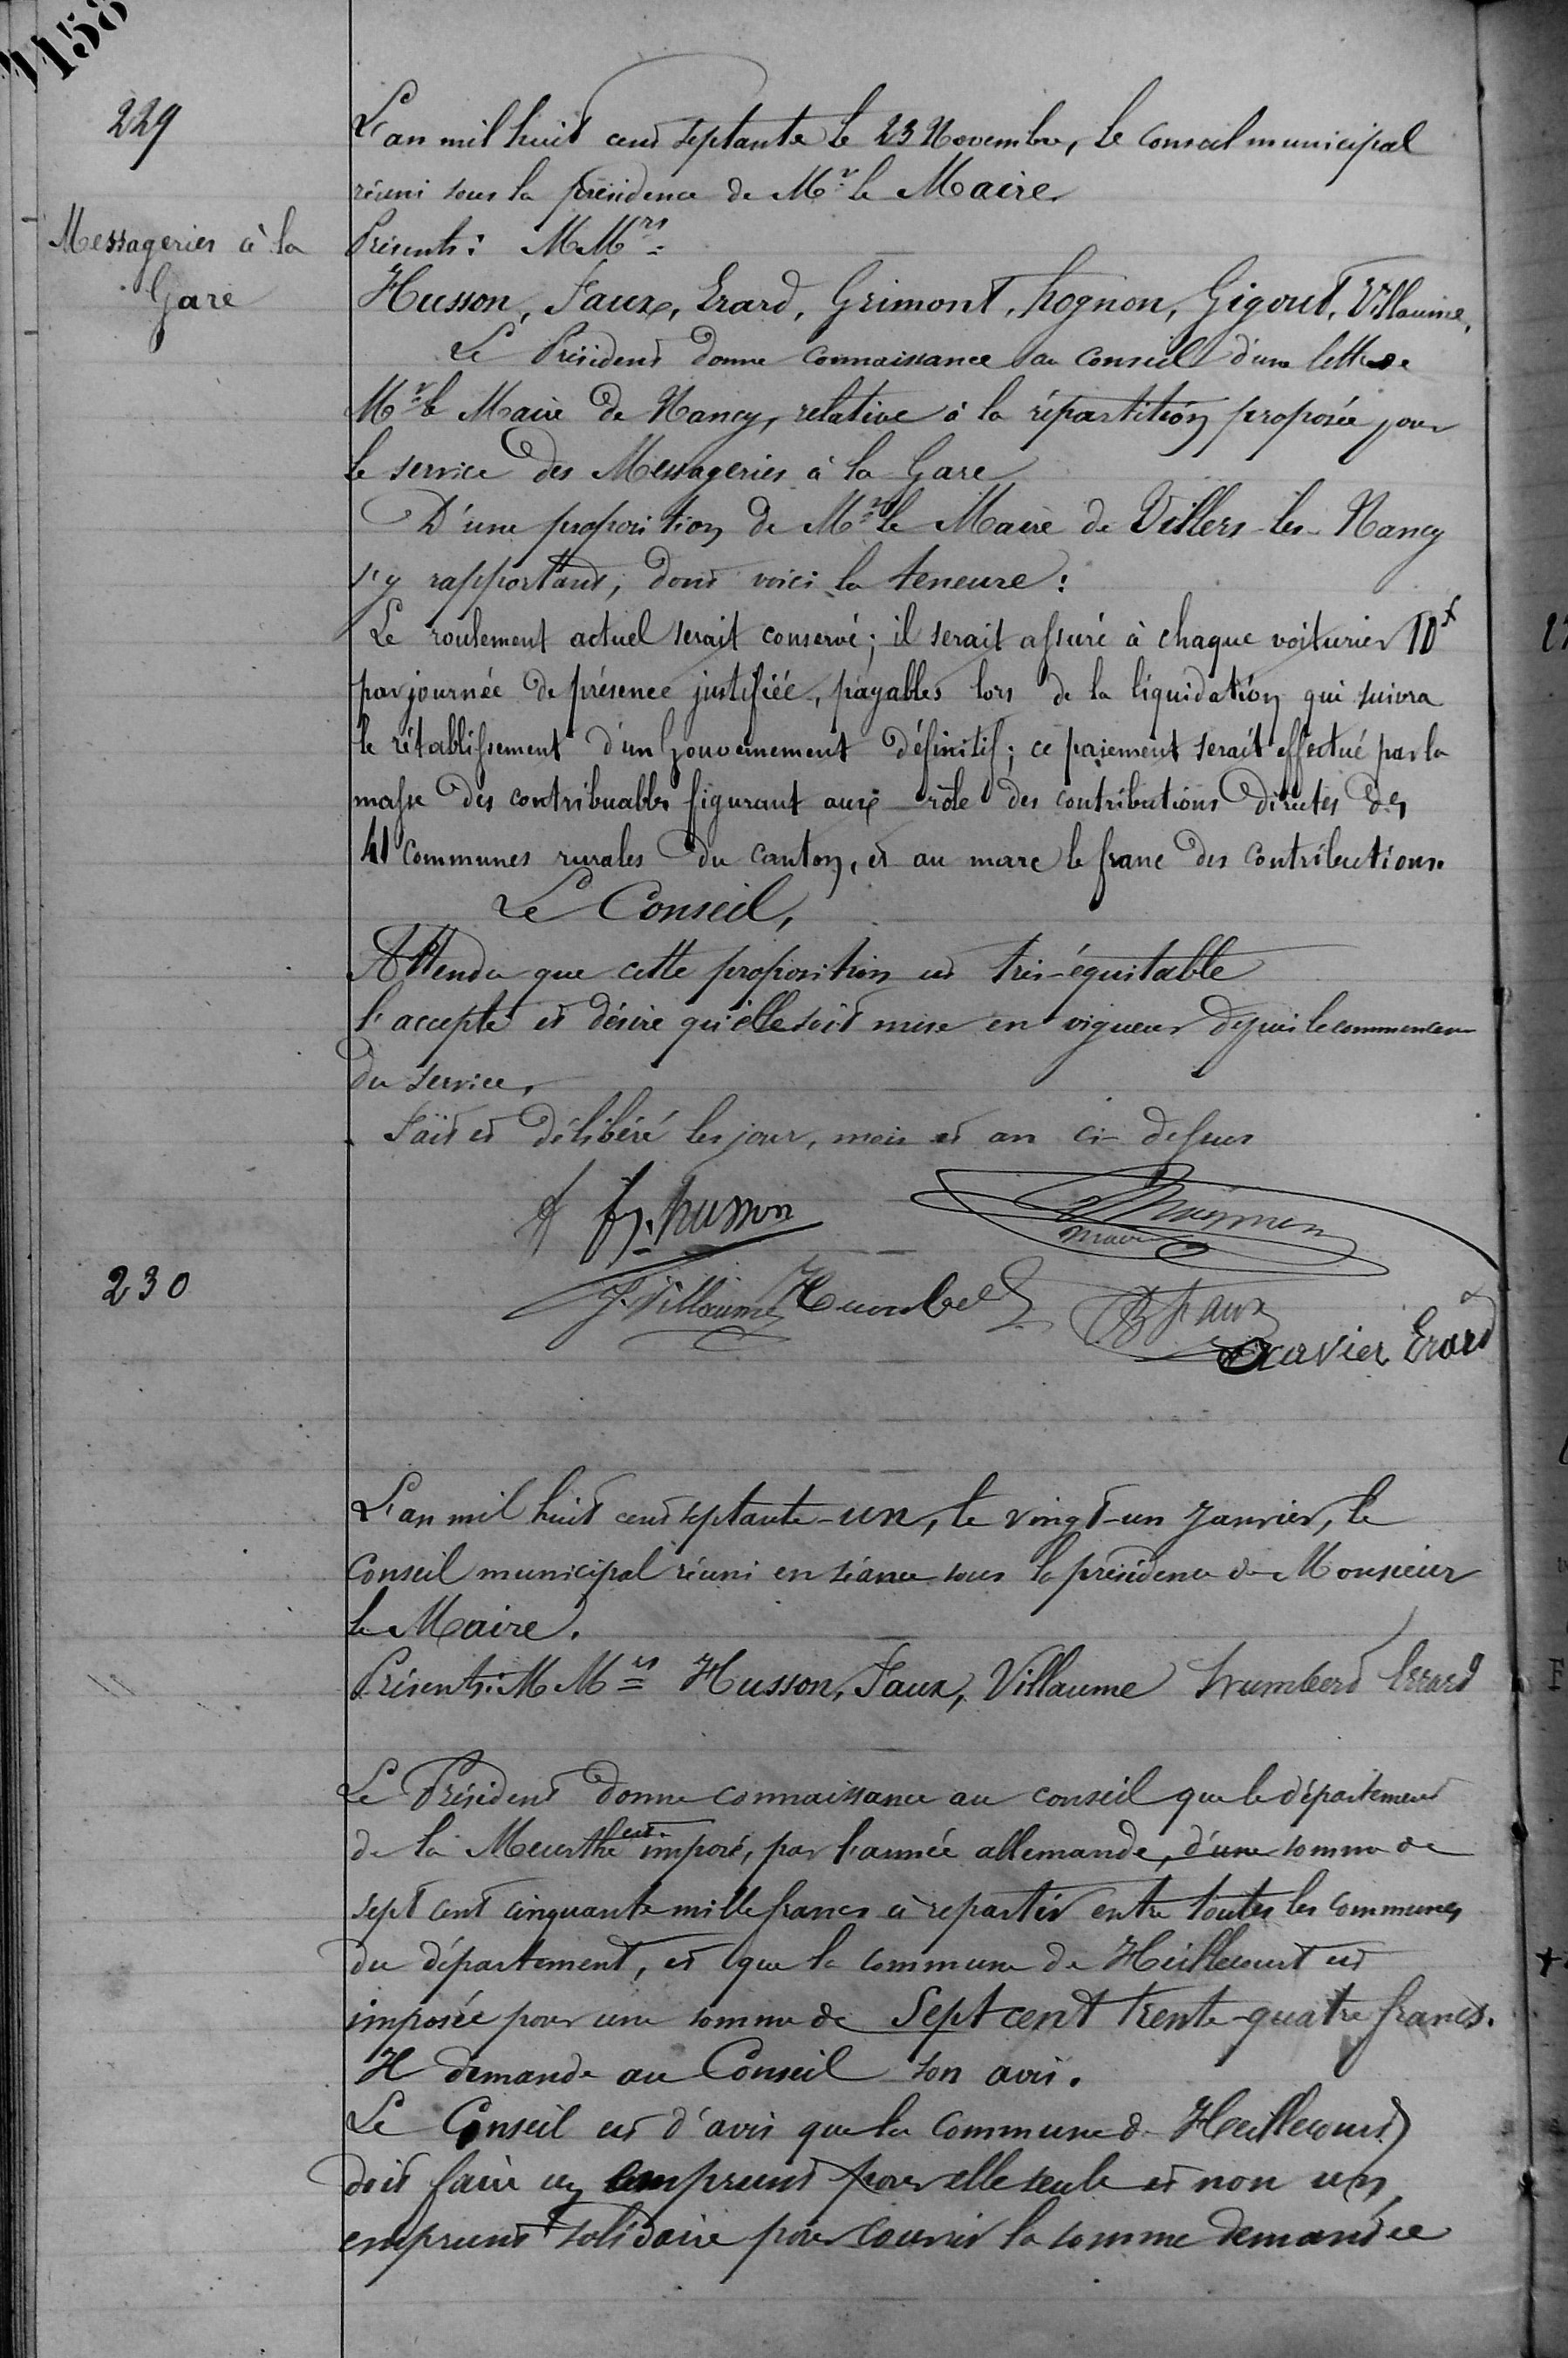 1158
229
Messageries à la
Gare
L'an mil huit cent septante le 23 Novembre, le Conseil municipal
réuni sous la présidence de Mr le Maire
Présents: MMrs
Husson, Faux, Erard, Grimont, hognon, Gigout, Villaume,
Le Président donne connaissance au conseil d'une lettre de
Mr le Maire de Nancy, relative à la répartition proposée pour
le service des Messageries à la Gare
D'une proposition de Mr le Maire de Villers-les-Nancy
s'y rapportant, dont voici la teneure:
Le roulement actuel serait conservé; il serait assuré à chaque voiturier 10f
par journée de présence justifiée, payables lors de la liquidation qui suivra
le rétablissement d'un Gouvernement définitif; ce paiement serait effectué par la
masse des contribuables figurant aux rôle des contributions directes des
41 communes rurales du canton, et au marc le franc des contributions.
Le Conseil,
Attendu que cette proposition est très-équitable
l'accepte et désire qu'elle soit mise en vigueur depuis le commencem
du service,
Fait et délibéré les jour, mois et an ci-dessus
husson
maire
J. Villaume Humbert
Faux
Xavier Erard
230
L'an mil huit cent septante-un, le vingt-un Janvier, le
Conseil municipal réuni en séance sous la présidence de Monsieur
le Maire.
Présents: MMrs Husson, Faux, Villaume humbert Errard
Le Président donne connaissance au conseil que le département
de la Meurthe est imposé, par l'armée allemande, d'une somme de
sept cent cinquante mille francs à repartir entre toutes les communes
du département, et que la commune de Heillecourt est
imposée pour une somme de Sept cent trente-quatre francs.
Il demande au Conseil son avis.
Le Conseil est d'avis que la commune de Heillecourt
doit faire un emprunt pour elle seule et non un
emprunt solidaire pour couvrir la somme demandée